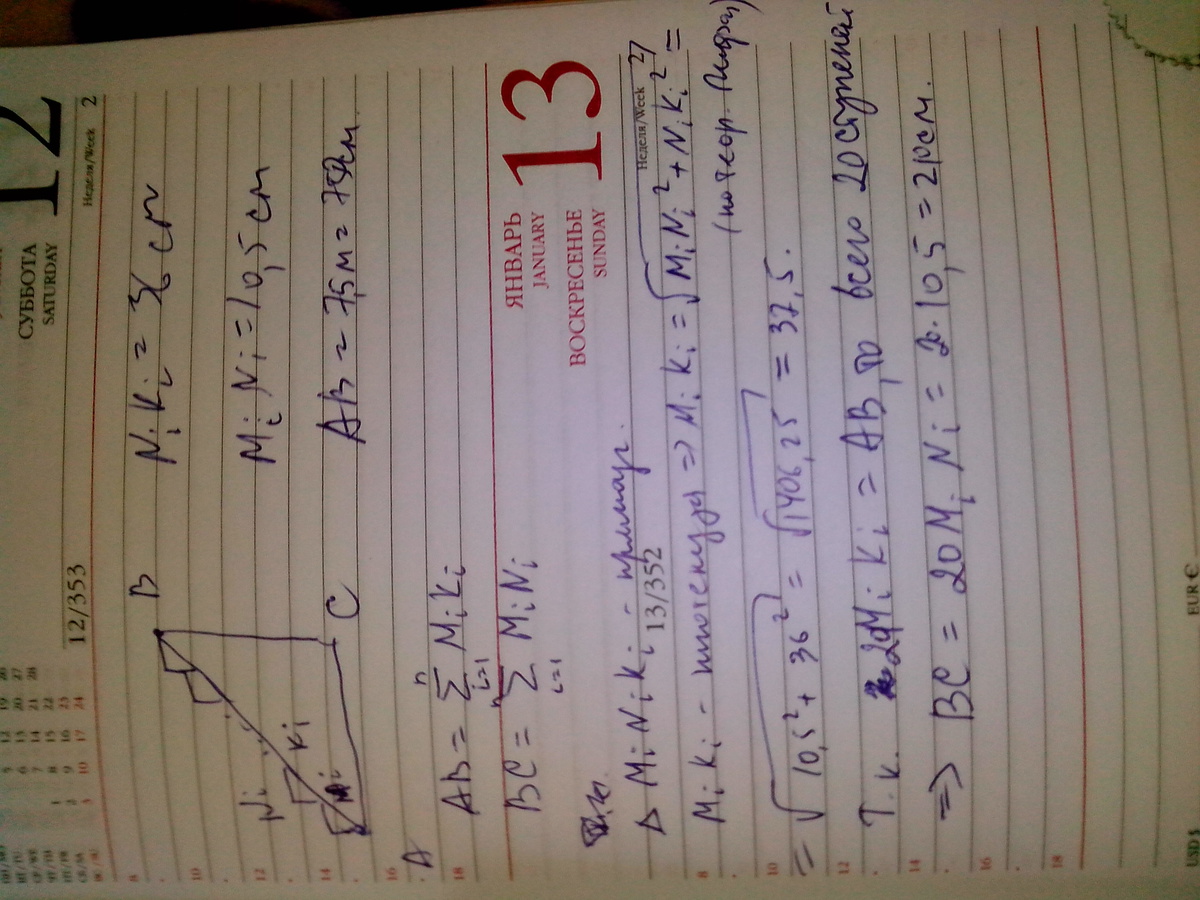 СУББОТА
SATURDAY
12
Неделя/Week 2
12/353
B
NᵢKᵢ = 36 см
MᵢNᵢ = 10,5 см
AB = 7,5 м = 750 см.
Nᵢ
Kᵢ
Mᵢ
A
C
AB = ∑ MᵢKᵢ
n
i=1
BC = ∑ MᵢNᵢ
n
i=1
ЯНВАРЬ
JANUARY
13
ВОСКРЕСЕНЬЕ
SUNDAY
Неделя/Week 2
13/352
Δ MᵢNᵢKᵢ - прямоуг.
MᵢKᵢ - гипотенуза => MᵢKᵢ = √MᵢNᵢ² + NᵢKᵢ² =
(по теор. Пифаг.)
= √10,5² + 36² = √1406,25 = 37,5.
Т.к. 20MᵢKᵢ = AB, то всего 20 ступеней
=> BC = 20MᵢNᵢ = 20·10,5 = 210 см.
8
10
12
14
16
18
8
10
12
14
16
18
USD $
EUR €